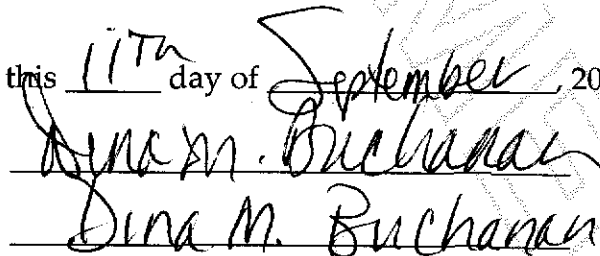 this 11Th day of September, 20
Dina M. Buchanan
Dina M. Buchanan